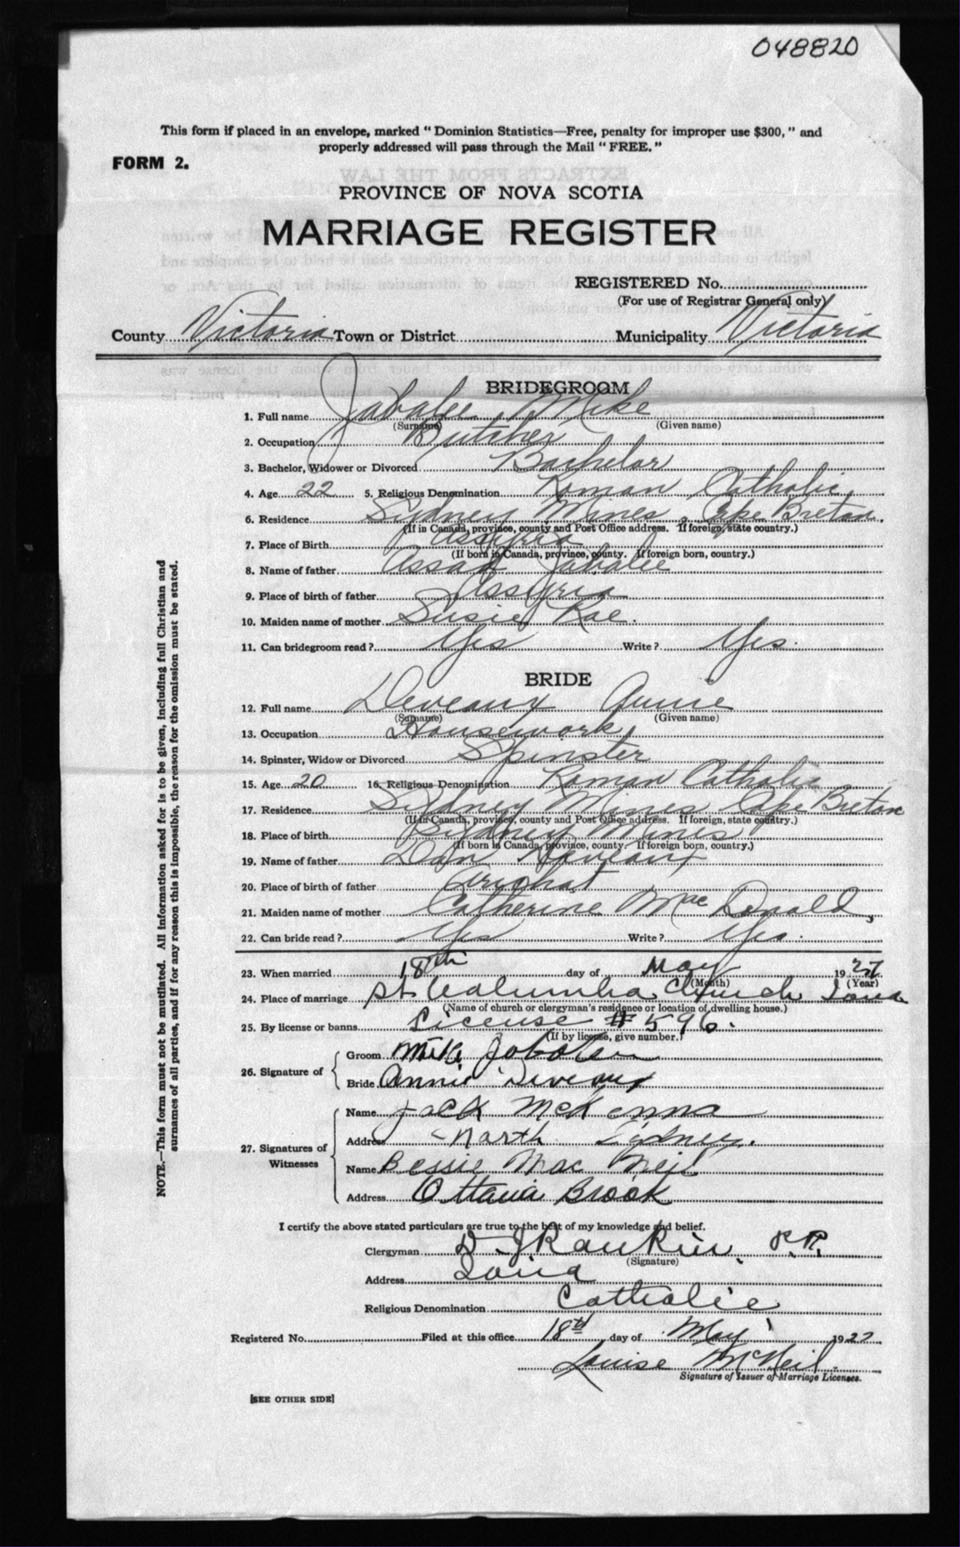 048820
This form if placed in an envelope, marked "Dominion Statistics—Free, penalty for improper use $300," and
properly addressed will pass through the Mail "FREE."
FORM 2.
PROVINCE OF NOVA SCOTIA
MARRIAGE REGISTER
REGISTERED No.
(For use of Registrar General only)
County Victoria Town or District Municipality Victoria
BRIDEGROOM
1. Full name Jabalee Mike
(Surname) (Given name)
2. Occupation Butcher
3. Bachelor, Widower or Divorced Bachelor
4. Age 22 5. Religious Denomination Roman Catholic
6. Residence Sydney Mines, Cape Breton.
(If in Canada, province, county and Post Office address. If foreign, state country.)
7. Place of Birth Assyria
(If born in Canada, province, county. If foreign born, country.)
8. Name of father Assaf Jabalee
9. Place of birth of father Assyria
10. Maiden name of mother Susie Rae.
11. Can bridegroom read? Yes Write? Yes.
BRIDE
12. Full name Deveaux Annie
(Surname) (Given name)
13. Occupation Housework
14. Spinster, Widow or Divorced Spinster
15. Age 20 16. Religious Denomination Roman Catholic
17. Residence Sydney Mines Cape Breton
(If in Canada, province, county and Post Office address. If foreign, state country.)
18. Place of birth Sydney Mines
(If born in Canada, province, county. If foreign born, country.)
19. Name of father Dan Deveaux
20. Place of birth of father Arichat
21. Maiden name of mother Catherine MacDonald,
22. Can bride read? Yes Write? Yes.
23. When married 18th day of May 1927
(Month) (Year)
24. Place of marriage St Columba Church Iona
(Name of church or clergyman's residence or location of dwelling house.)
25. By license or banns License # 596.
(If by license, give number.)
26. Signature of
Groom Mike
Bride Annie Deveaux
27. Signatures of Witnesses
Name Jack McKenna
Address North Sydney.
Name Bessie MacNeil
Address Ottawa Brook
I certify the above stated particulars are true to the best of my knowledge and belief.
Clergyman D. J. Rankin, P.P.
(Signature)
Address Iona
Religious Denomination Catholic
Registered No. Filed at this office 18th day of May 1927
Louise McNeil
Signature of Issuer of Marriage Licenses.
[SEE OTHER SIDE]
NOTE.—This form must not be mutilated. All information asked for is to be given, including full Christian and
surnames of all parties, and if for any reason this is impossible, the reason for the omission must be stated.